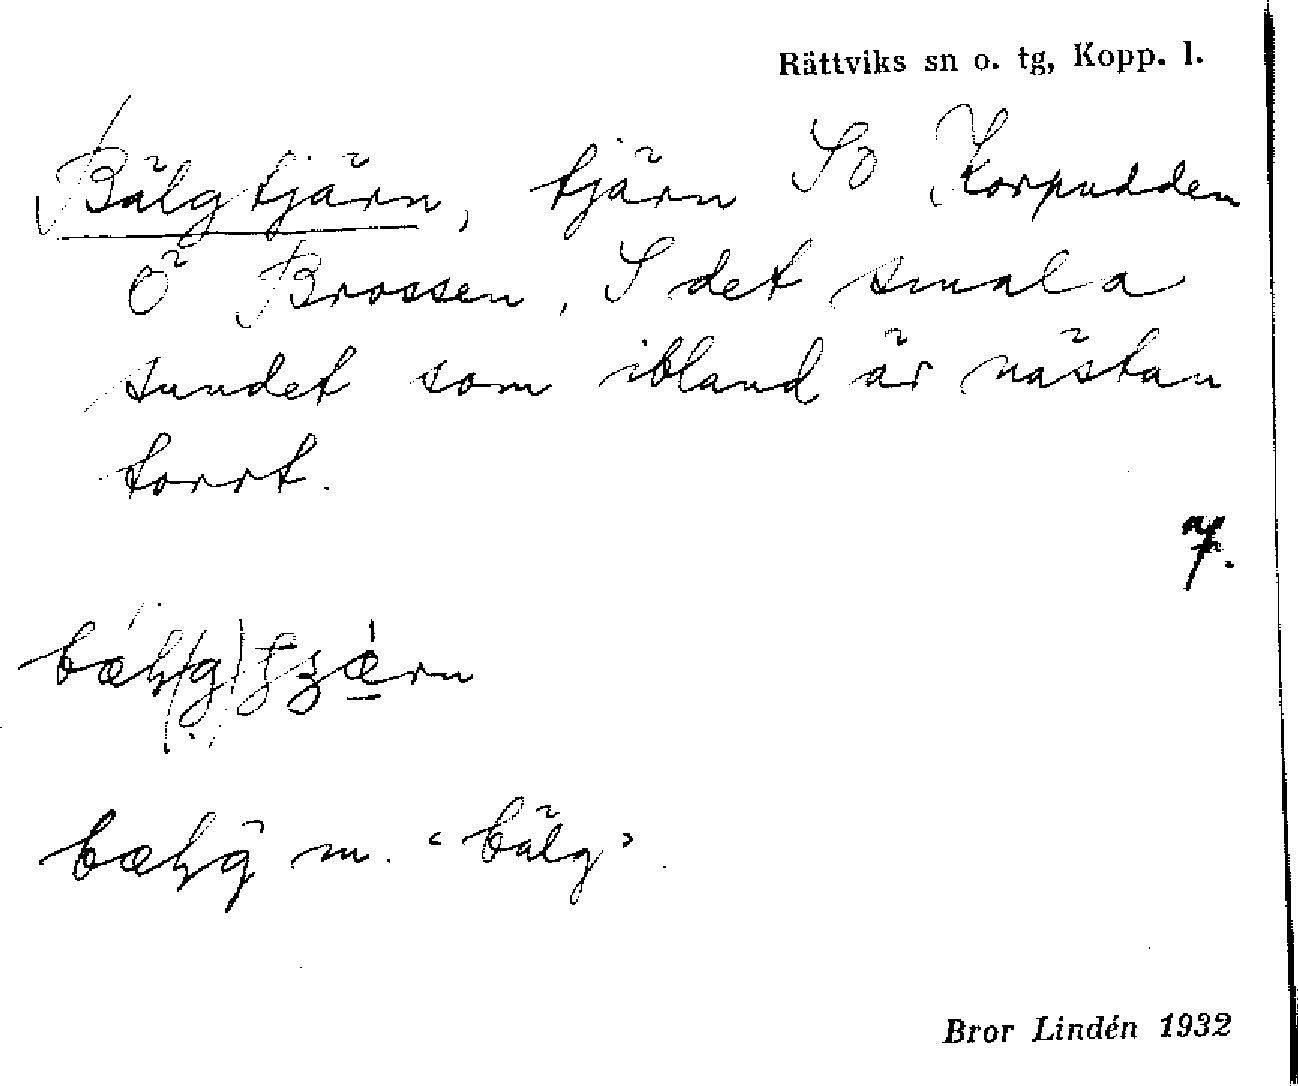 Rättviks sn o. tg, Kopp. l.
Bälgtjärn, tjärn SO Korpudden
Ö Brossen, I det smala
sundet som ibland är nästan
torrt.
7.
m. "bälg".
Bror Lindén 1932